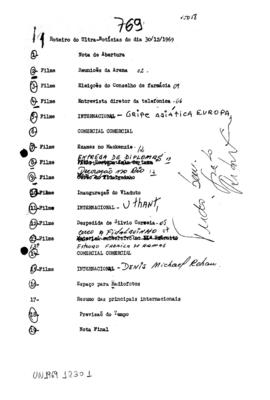 769
Roteiro do Ultra-Notícias do dia 30/12/1969
1- Nota de Abertura
2- Filme Reunião da Arena 02
3- Filme Eleições do Conselho de farmácia 09
4- Filme Entrevista diretor da telefonica -06
5- Filme INTERNACIONAL- GRIPE ASIÁTICA EUROPA
6- COMERCIAL COMERCIAL
7- Filme Exames no Mackenzie- 16
8- Filme ENTREGA DE DIPLOMAS
9- Filme
10- Filme Inauguração do Viaduto
11- Filme INTERNACIONAL- U THANT
12- Filme Despedida de Silvio Correia-05
13- Filme
14- COMERCIAL COMERCIAL
15- Filme INTERNACIONAL- DENIS Michael Rohan
16- Espaço para Radiofotos
17- Resumo das principais internacionais
18- Previsão do Tempo
19- Nota Final
UN1969 1230 1